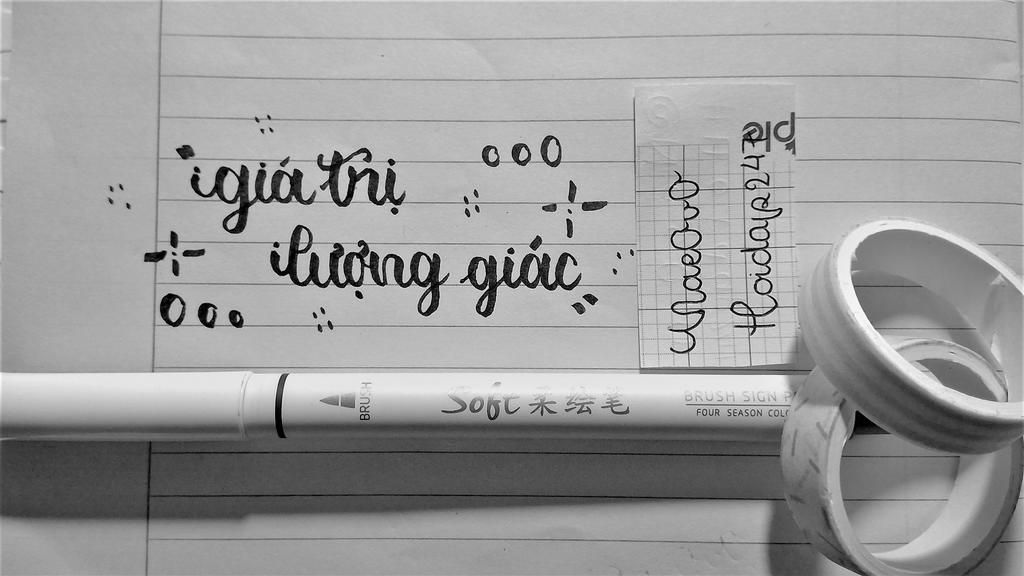 giá trị
lượng giác
Hoidap247
BRUSH
Soft 柔绘笔
BRUSH SIGN P
FOUR SEASON COLO